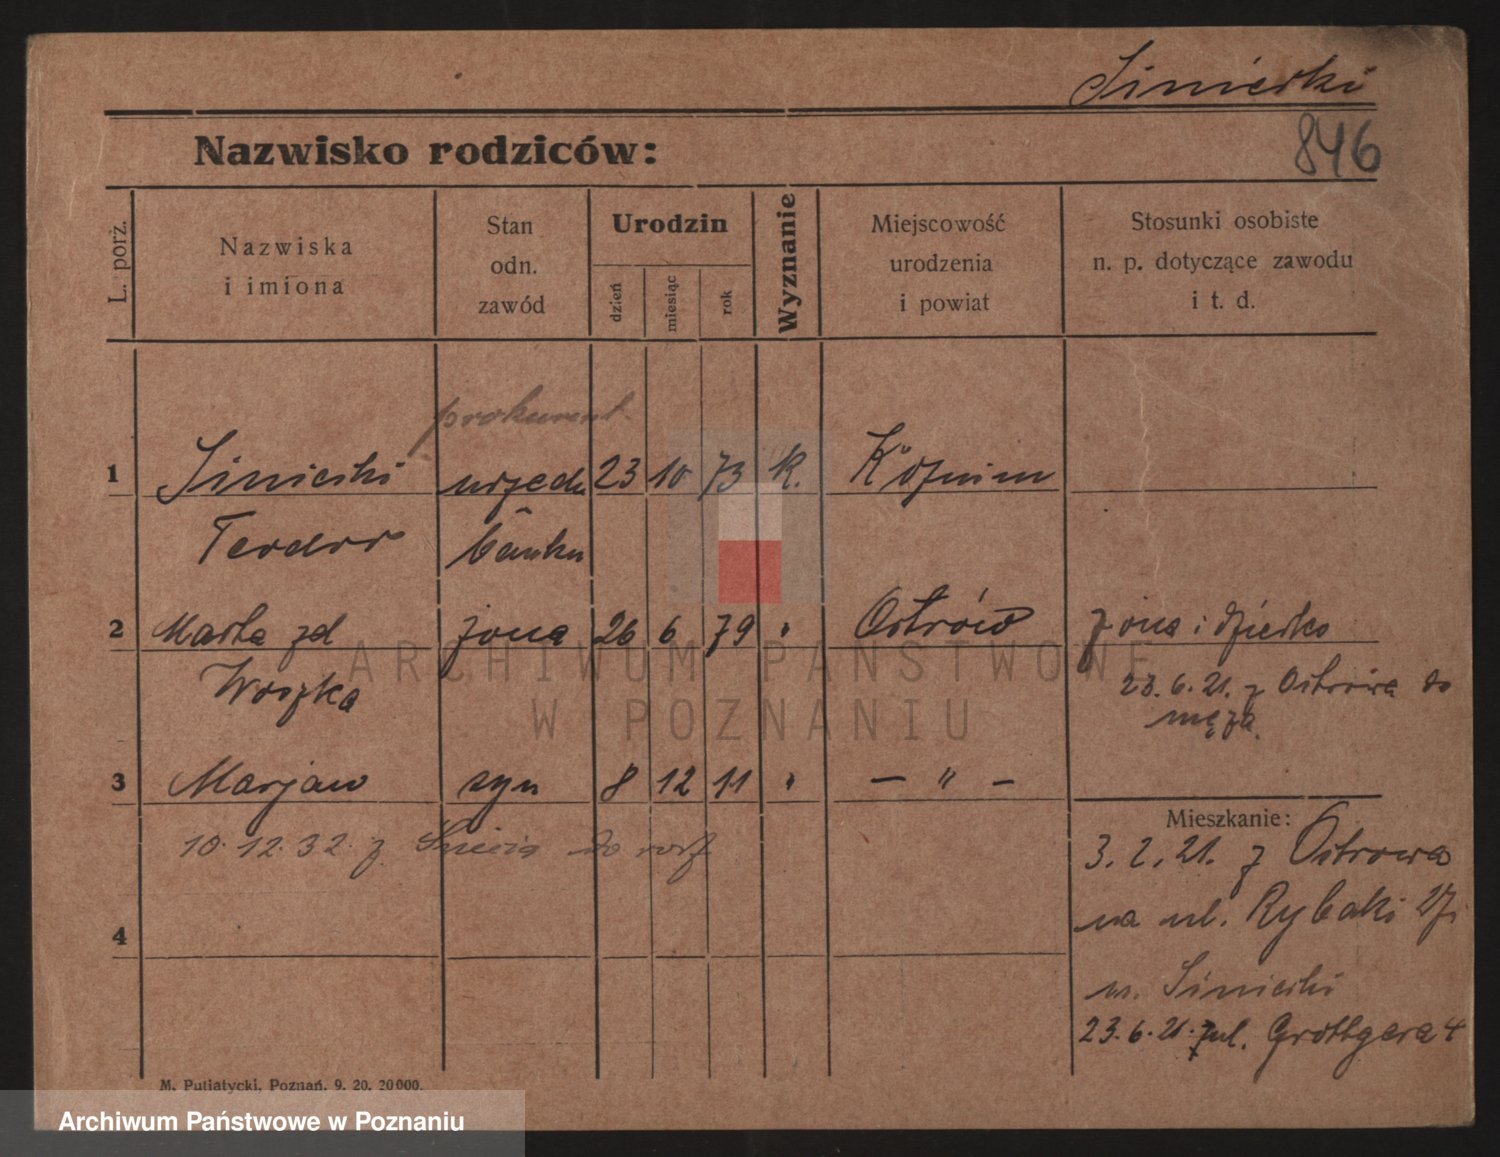 Siniecki
846
Nazwisko rodziców:
L. porz.
Nazwiska
i imiona
Stan
odn.
zawód
Urodzin
dzień
miesiąc
rok
Wyznanie
Miejscowość
urodzenia
i powiat
Stosunki osobiste
n. p. dotyczące zawodu
i t. d.
prokurent.
1 Siniecki urzędn 23 10 73 k. Koźmin
Teodor banku
2 Marta zd żona 26 6 79 " Ostrów żona i dziecko
Woszka 23.6.21. z Ostrowa do
męża.
3 Marjan syn 8 12 11 " — " —
10.12.32. z do
4
Mieszkanie:
3.2.21. z Ostrowa
na ul. Rybaki 27
Siniecki
23.6.21. ul. Grottgera 4
M. Putiatycki, Poznań. 9. 20. 20000.
ARCHIWUM PAŃSTWOWE
W POZNANIU
Archiwum Państwowe w Poznaniu